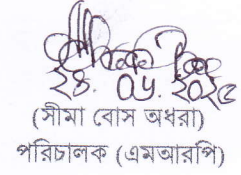 ২৪.০৬.২০২৫
(সীমা বোস অধরা)
পরিচালক (এমআরপি)